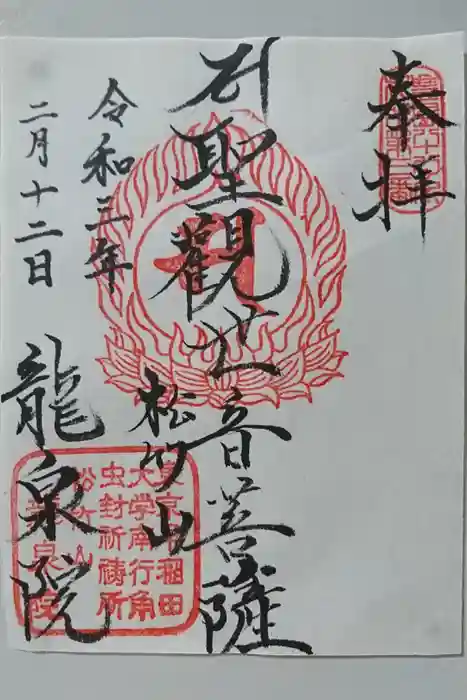 奉拝
聖観世音菩薩
松竹山
龍泉院
令和三年
二月十二日
東京早稲田
大学南行角
虫封祈祷所
松竹山
龍泉院